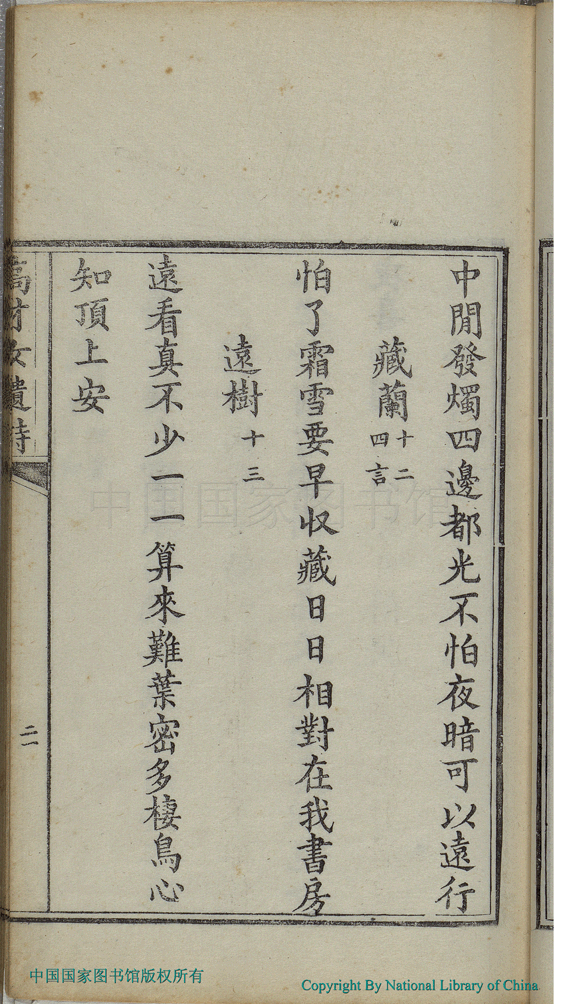 中閒發燭四邊都光不怕夜暗可以遠行
藏蘭 十二
四言
怕了霜雪要早收藏日日相對在我書房
遠樹 十三
遠看真不少一一算來難葉密多棲鳥心
知頂上安
高才女遺詩
二
中国国家图书馆
中国国家图书馆版权所有
Copyright By National Library of China